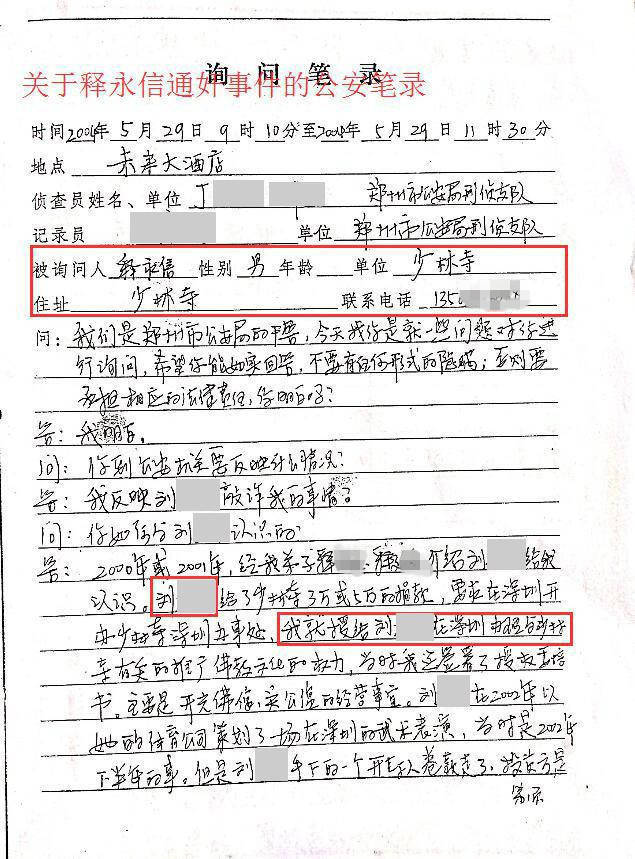 询 问 笔 录
关于释永信通奸事件的公安笔录
时间2004年 5 月 29 日 9 时 10 分至2004年 5 月 29 日 11 时 30 分
地点 未来大酒店
侦查员姓名、单位 丁 郑州市公安局刑侦支队
记录员 单位 郑州市公安局刑侦支队
被询问人 释永信 性别 男 年龄 单位 少林寺
住址 少林寺 联系电话 1350
问：我们是郑州市公安局的干警，今天找你是就一些问题对你进
行询问，希望你能如实回答，不要有任何形式的隐瞒，否则要
承担相应的法律责任，你明白吗？
答：我明白。
问：你到公安机关要反映什么情况？
答：我反映刘 敲诈我的事情。
问：你如何与刘 认识的
答：2000年或2001年，经我弟子释 释 介绍刘 给我
认识。刘 给了少林寺3万或5万的捐款，要求在深圳开
办少林寺深圳办事处，我就授给刘 在深圳办理与少林
寺有关的推广佛教文化的权力，当时我还签署了授权委托
书。主要是开光佛像、卖公园的经营事宜。刘 在2002年以
她的体育公司策划了一场在深圳的武术表演，当时是2002年
下半年的事。但是刘 手下的一个开车人卷款走了，投资方是